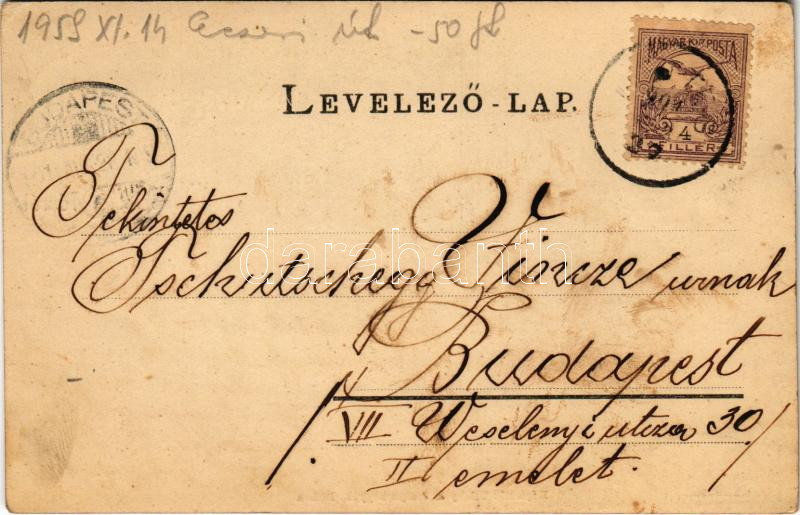 1959 XI. 14 Ecseri út -50 f
LEVELEZŐ-LAP.
MAGYAR KIR POSTA
4
FILLER
BUDAPES
Tekintetes
Tschutschegg Vincze urnak
Budapest
VII Weselenyi utcza 30
II emelet.
darabanth